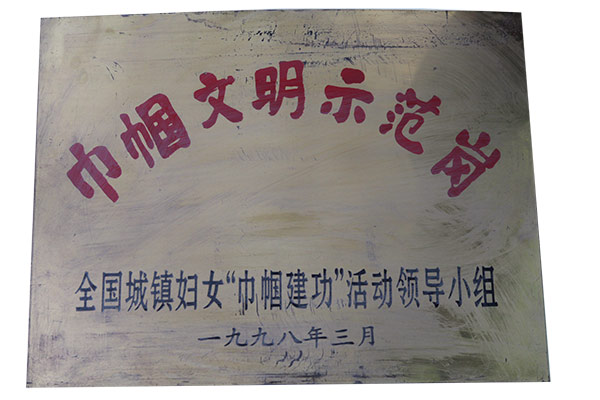 巾帼文明示范岗
全国城镇妇女“巾帼建功”活动领导小组
一九九八年三月